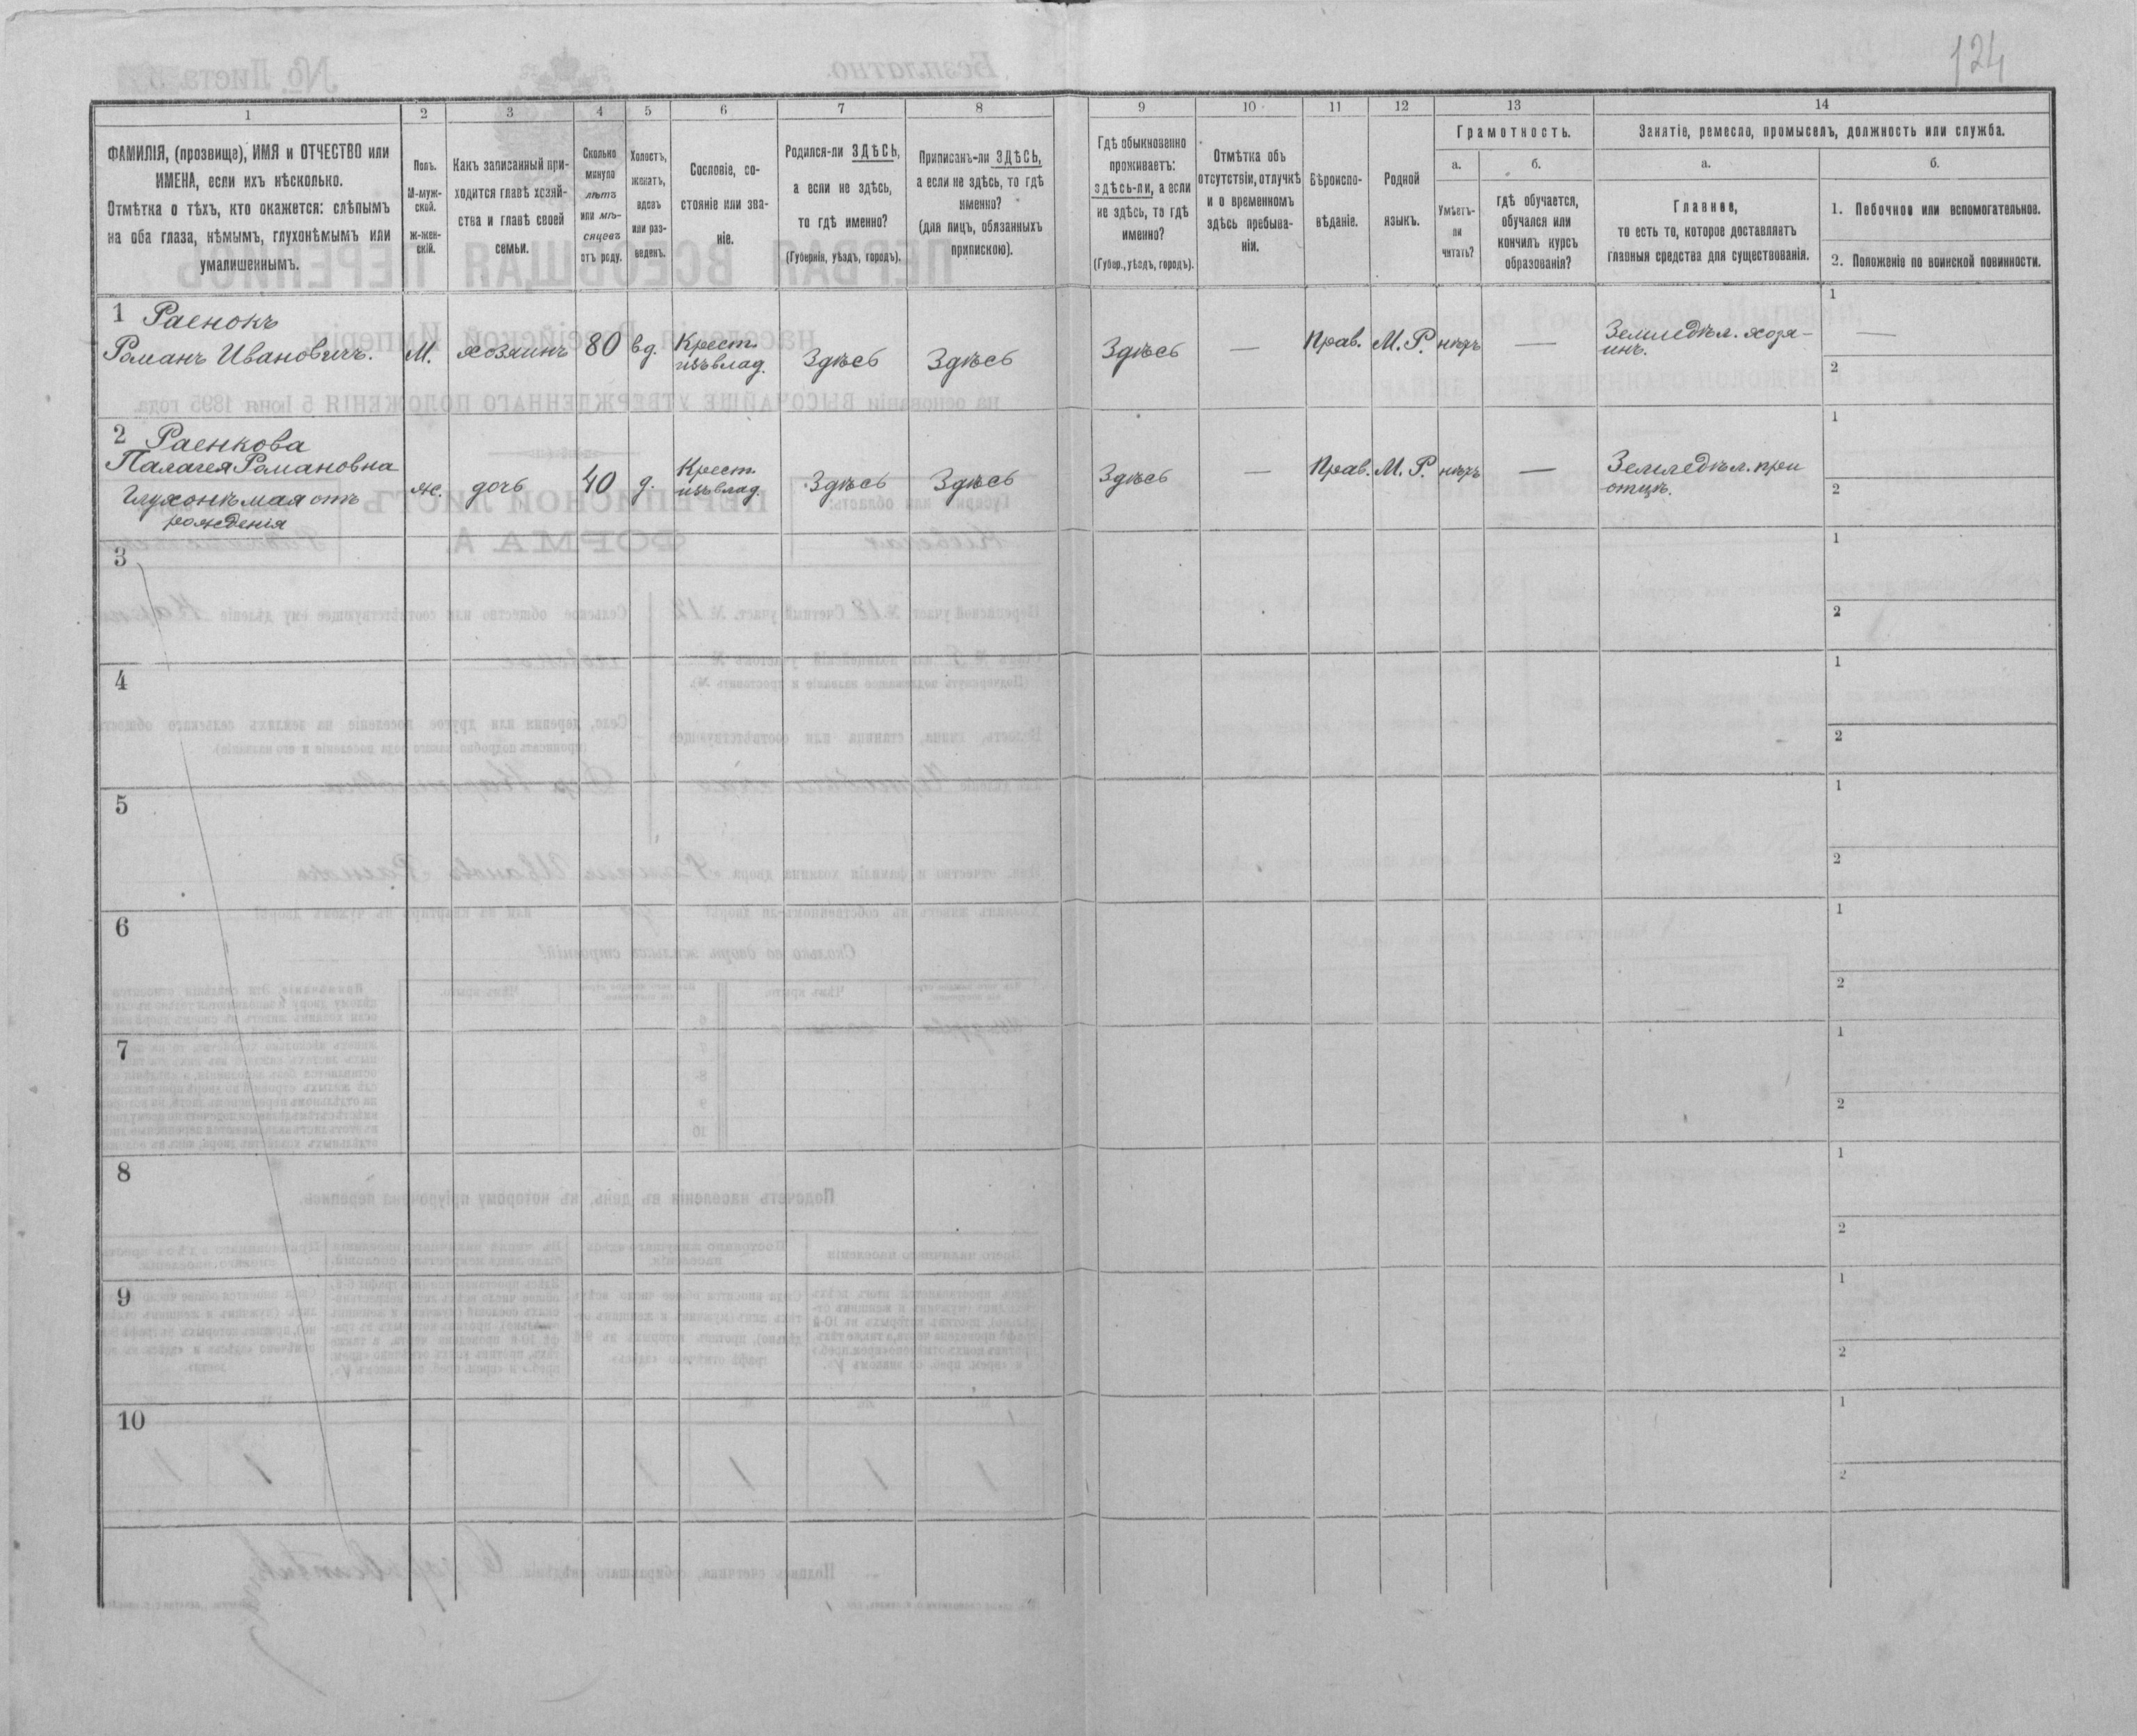 124
1
2
3
4
5
6
7
8
9
10
11
12
13
14
ФАМИЛІЯ, (прозвище), ИМЯ и ОТЧЕСТВО или
ИМЕНА, если ихъ нѣсколько.
Отмѣтка о тѣхъ, кто окажется: слѣпымъ
на оба глаза, нѣмымъ, глухонѣмымъ или
умалишеннымъ.
Полъ.
М-муж-
ской.
Ж-жен-
скій.
Какъ записанный при-
ходится главѣ хозяй-
ства и главѣ своей
семьи.
Сколько
минуло
лѣтъ
или мѣ-
сяцевъ
отъ роду.
Холостъ,
женатъ,
вдовъ
или раз-
веденъ.
Сословіе, со-
стояніе или зва-
ніе.
Родился-ли ЗДѢСЬ,
а если не здѣсь,
то гдѣ именно?
(Губернія, уѣздъ, городъ).
Приписанъ-ли ЗДѢСЬ,
а если не здѣсь, то гдѣ
именно?
(для лицъ, обязанныхъ
припискою).
Гдѣ обыкновенно
проживаетъ:
здѣсь-ли, а если
не здѣсь, то гдѣ
именно?
(Губер., уѣздъ, городъ).
Отмѣтка объ
отсутствіи, отлучкѣ
и о временномъ
здѣсь пребыва-
ніи.
Вѣроиспо-
вѣданіе.
Родной
языкъ.
Грамотность.
а.
б.
Умѣетъ-
ли
читать?
гдѣ обучается,
обучался или
кончилъ курсъ
образованія?
Занятіе, ремесло, промыселъ, должность или служба.
а.
б.
Главное,
то есть то, которое доставляетъ
главныя средства для существованія.
1. Побочное или вспомогательное.
2. Положеніе по воинской повинности.
1 Раенокъ
Романъ Ивановичъ.
М.
хозяинъ
80
вд.
Крест.
изъ влад.
Здѣсь
Здѣсь
Здѣсь
—
Прав.
М. Р.
нѣтъ
—
Земледѣл. хозя-
инъ.
1
—
2
2 Раенкова
Палагея Романовна
Глухонѣмая отъ
рожденія
ж.
дочь
40
д.
Крест.
изъ влад.
Здѣсь
Здѣсь
Здѣсь
—
Прав.
М. Р.
нѣтъ
—
Земледѣл. при
отцѣ.
1
2
3
1
2
4
1
2
5
1
2
6
1
2
7
1
2
8
1
2
9
1
2
10
1
2